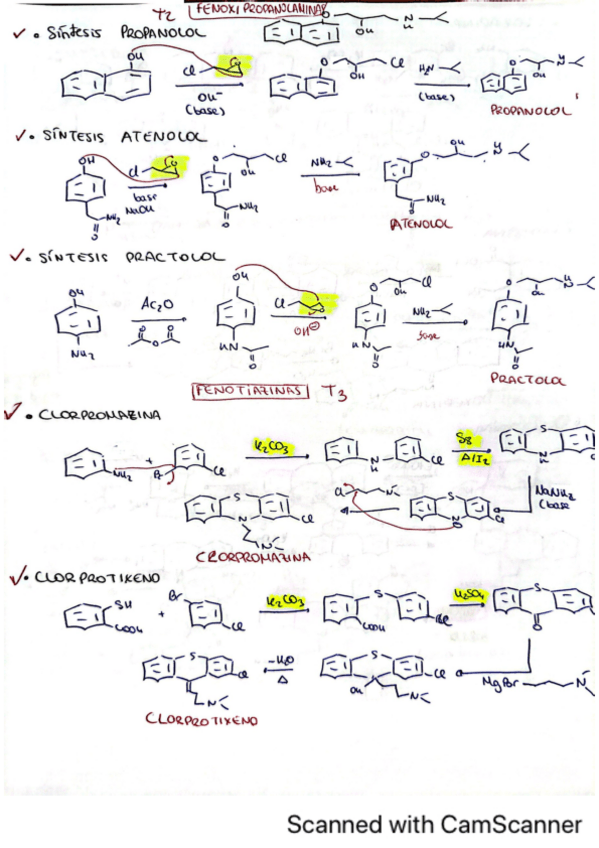 T2 FENOXIPROPANOLAMINAS
✓ • SÍNTESIS PROPANOLOL
OH
O
OH
N
H
Cl
O
OH⁻
(base)
O
OH
Cl
H₂N
(base)
O
OH
N
H
PROPANOLOL
✓ • SÍNTESIS ATENOLOL
OH
NH₂
O
Cl
base
NaOH
O
OH
Cl
NH₂
O
NH₂
base
O
OH
N
H
NH₂
O
ATENOLOL
✓ • SÍNTESIS PRACTOLOL
OH
NH₂
Ac₂O
O O O
OH
HN
O
Cl
OH⊖
O
OH
Cl
HN
O
NH₂
base
O
OH
N
H
HN
O
PRACTOLOL
FENOTIAZINAS T3
✓ • CLORPROMAZINA
NH₂
+
Br
Cl
K₂CO₃
N
H
Cl
S8
Δ/I₂
S
N
H
NaNH₂
(base
S
N
Cl
Cl
N
S
N
Cl
N
CLORPROMAZINA
✓ • CLORPROTIXENO
SH
COOH
+
Br
Cl
K₂CO₃
S
COOH
Cl
H₂SO₄
S
O
Cl
MgBr
N
S
OH
Cl
N
-H₂O
Δ
S
Cl
N
CLORPROTIXENO
Scanned with CamScanner